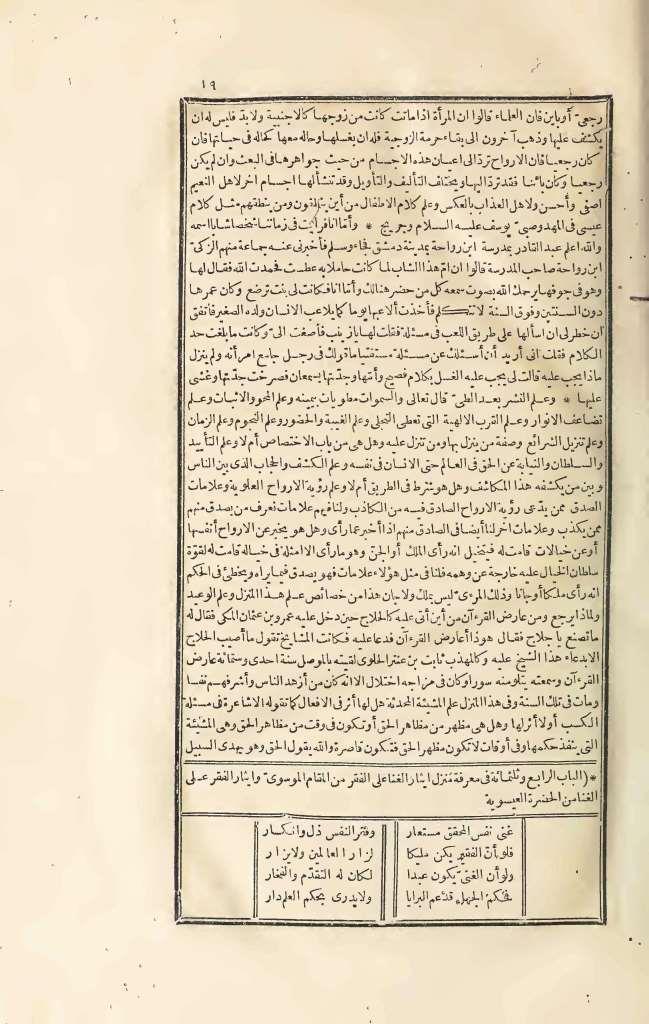 ١٩
رجعىّ أو باين فان العلماء قالوا ان المرأة اذا ماتت كانت من زوجها كالاجنبية ولا بدّ فليس له ان
يكشف عليها وذهب آخرون الى بقاء حرمة الزوجية فله ان يغسلها وحاله معها كحاله فى حياتها فان
كان رجعيا فان الارواح تردّ الى اعيان هذه الاجسام من حيث جواهرها فى البعث وان لم يكن
رجعيا وكان بائنا فقد تردّ اليها ويختلف التأليف والتأويل وقد تنشأ لها اجسام اخر لاهل النعيم
اصفى وأحسن ولاهل العذاب بالعكس وعلم كلام الاطفال من أين ينطقون ومن ينطقهم مثل كلام
عيسى فى المهد وصبىّ يوسف عليه السلام وجريج * وأمّا انا فرأيت فى زماننا شخصا شابا اسمه
والله اعلم عبد القادر بمدرسة ابن رواحة بمدينة دمشق فجاء وسلم فأخبرنى عنه جماعة منهم الزكىّ
ابن رواحة صاحب المدرسة قالوا ان امّ هذا الشاب لما كانت حاملا به عطست فحمدت الله فقال لها
وهو فى جوفها يرحمك الله بصوت سمعه كل من حضر هنالك وأمّا انا فكانت لى بنت ترضع وكان عمرها
دون السنتين وفوق السنة لا تتكلم فأخذت ألاعبها يوما كما يلاعب الانسان ولده الصغير فاتفق
ان خطر لى ان اسألها على طريق اللعب فى مسئلة فقلت لها يا زينب فأصغت الىّ وكانت ما بلغت حد
الكلام فقلت انى أريد أن أسئلك عن مسئلة مستفتيا ما قولك فى رجل جامع امرأته ولم ينزل
ماذا يجب عليه قالت لى يجب عليه الغسل بكلام فصيح وأمّها وجدّتها يسمعان فصرخت جدّتها وغشى
عليها * وعلم النشر بعد الطىّ قال تعالى والسموات مطويات بيمينه وعلم المحو والاثبات وعلم
تضاعف الانوار وعلم القرب الالهية التى تعطى التجلى وعلم الغيبة والحضور وعلم النجوم وعلم الزمان
وعلم تنزيل الشرائع وصفة من ينزل بها ومن تنزل عليه وهل هى من باب الاختصاص أم لا وعلم التأييد
والسلطان والنيابة عن الحق فى العالم حتى الانسان فى نفسه وعلم الكشف والحجاب الذى بين الناس
وبين من يكشفه هذا المكاشف وهل هو شرط فى الطريق أم لا وعلم رؤية الارواح العلوية وعلامات
الصدق ممن يدّعى رؤية الارواح الصادق فيه من الكاذب ولنا فيهم علامات نعرف من يصدق منهم
ممن يكذب وعلامات اخر لنا أيضا فى الصادق منهم اذا أخبر عما رأى وهل هو يخبر عن الارواح أنفسها
أو عن خيالات قامت له فيتخيل انه رأى الملك أو الجنّ وهو ما رأى الا امثلة فى خياله قامت له لقوّة
سلطان الخيال عليه خارجة عن وهمه فلنا فى مثل هؤلاء علامات فهو يصدق فيما يراه ويخطئ فى الحكم
انه رأى ملكا أو جانا وذلك المرئىّ ليس بملك ولا جان هذا من خصائص علم هذا المنزل وعلم الوعيد
ولماذا يرجع ومن عارض القرءآن من أين أتى عليه كالحلاج حين دخل عليه عمرو بن عثمان المكى فقال له
ما تصنع يا حلاج فقال هو ذا أعارض القرءآن فدعا عليه فكانت المشايخ تقول ما أصيب الحلاج
الا بدعاء هذا الشيخ عليه وكالمهذب ثابت بن عنتر الحلوى لقيته بالموصل سنة احدى وستمائة عارض
القرءآن وسمعته يتلو منه سورا وكان فى مزاجه اختلال الا انه كان من أزهد الناس وأشرفهم نفسا
ومات فى تلك السنة وفى هذا المنزل علم المشيئة المحدثة هل لها أثر فى الافعال كما تقوله الاشاعرة فى مسئلة
الكسب أو لا أثر لها وهل هى مظهر من مظاهر الحق أو تكون فى وقت من مظاهر الحق وهى المشيئة
التى ينفذ حكمها وفى أوقات لا تكون مظهر الحق فتكون قاصرة والله يقول الحق وهو يهدى السبيل
* (الباب الرابع وثلثمائة فى معرفة منزل ايثار الغنا على الفقر من المقام الموسوىّ وايثار الفقر على
الغنا من الحضرة العيسوية
غنى نفس المحقق مستعار وفقر النفس ذل وانكسار
فلو أنّ الفقير يكن مليكا لزار العالمين ولا يزار
ولو أن الغنىّ يكون عبدا لكان له التقدّم والفخار
فحكم الجهل قد عم البرايا ولا يدرى بحكم العلم دار